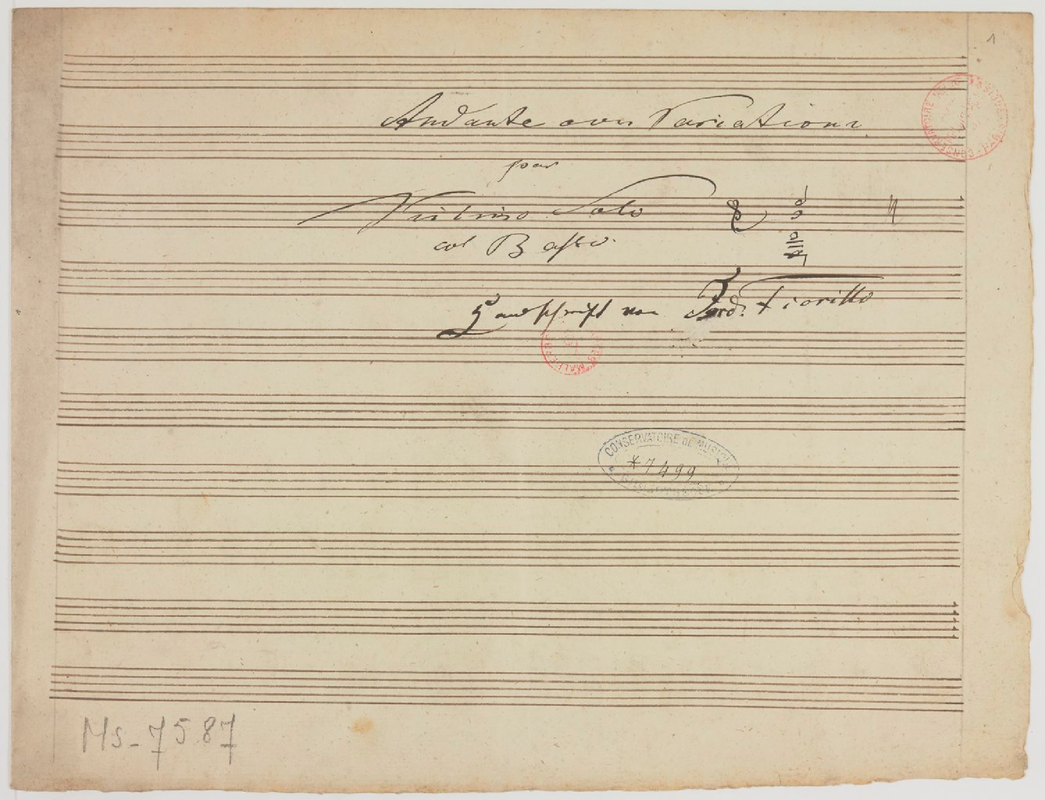 1
Andante avec Variations
pour
Violino Solo
col Basso.
Handschrift von Ferd. Fiorillo
CONSERVATOIRE DE MUSIQUE
*7499
BIBLIOTHÈQUE
Ms-7587